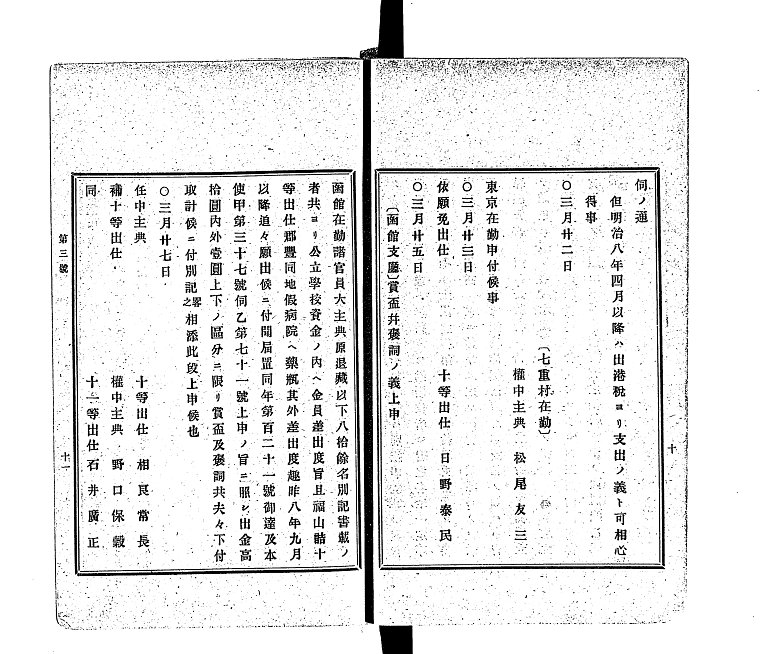 伺ノ通
但明治八年四月以降ハ出港税ヨリ支出ノ義ト可相心
得事
〇三月廿二日
〔七重村在勤〕
權中主典 松尾友三
東京在勤申付候事
〇三月廿三日
十等出仕 日野泰民
依願免出仕
〇三月廿五日
〔函館支廳〕賞盃幷褒詞ノ義上申
十
函館在勤諸官員大主典原退藏以下八拾餘名別記書載ノ
者共ヨリ公立學校資金ノ內ヘ金員差出度旨且福山詰十
等出仕郷豐同地假病院ヘ藥瓶其外差出度趣昨八年九月
以降追々願出候ニ付聞届置同年第百二十一號御達及本
使甲第三十七號伺乙第七十一號上申ノ旨ニ照シ出金高
拾圓內外壹圓上下ノ區分ニ限リ賞盃及褒詞共夫々下付
取計候ニ付別記畧之相添此段上申候也
〇三月廿七日
任中主典 十等出仕 相良常長
補十等出仕 權中主典 野口保毅
同 十一等出仕 石井廣正
第三號
十一